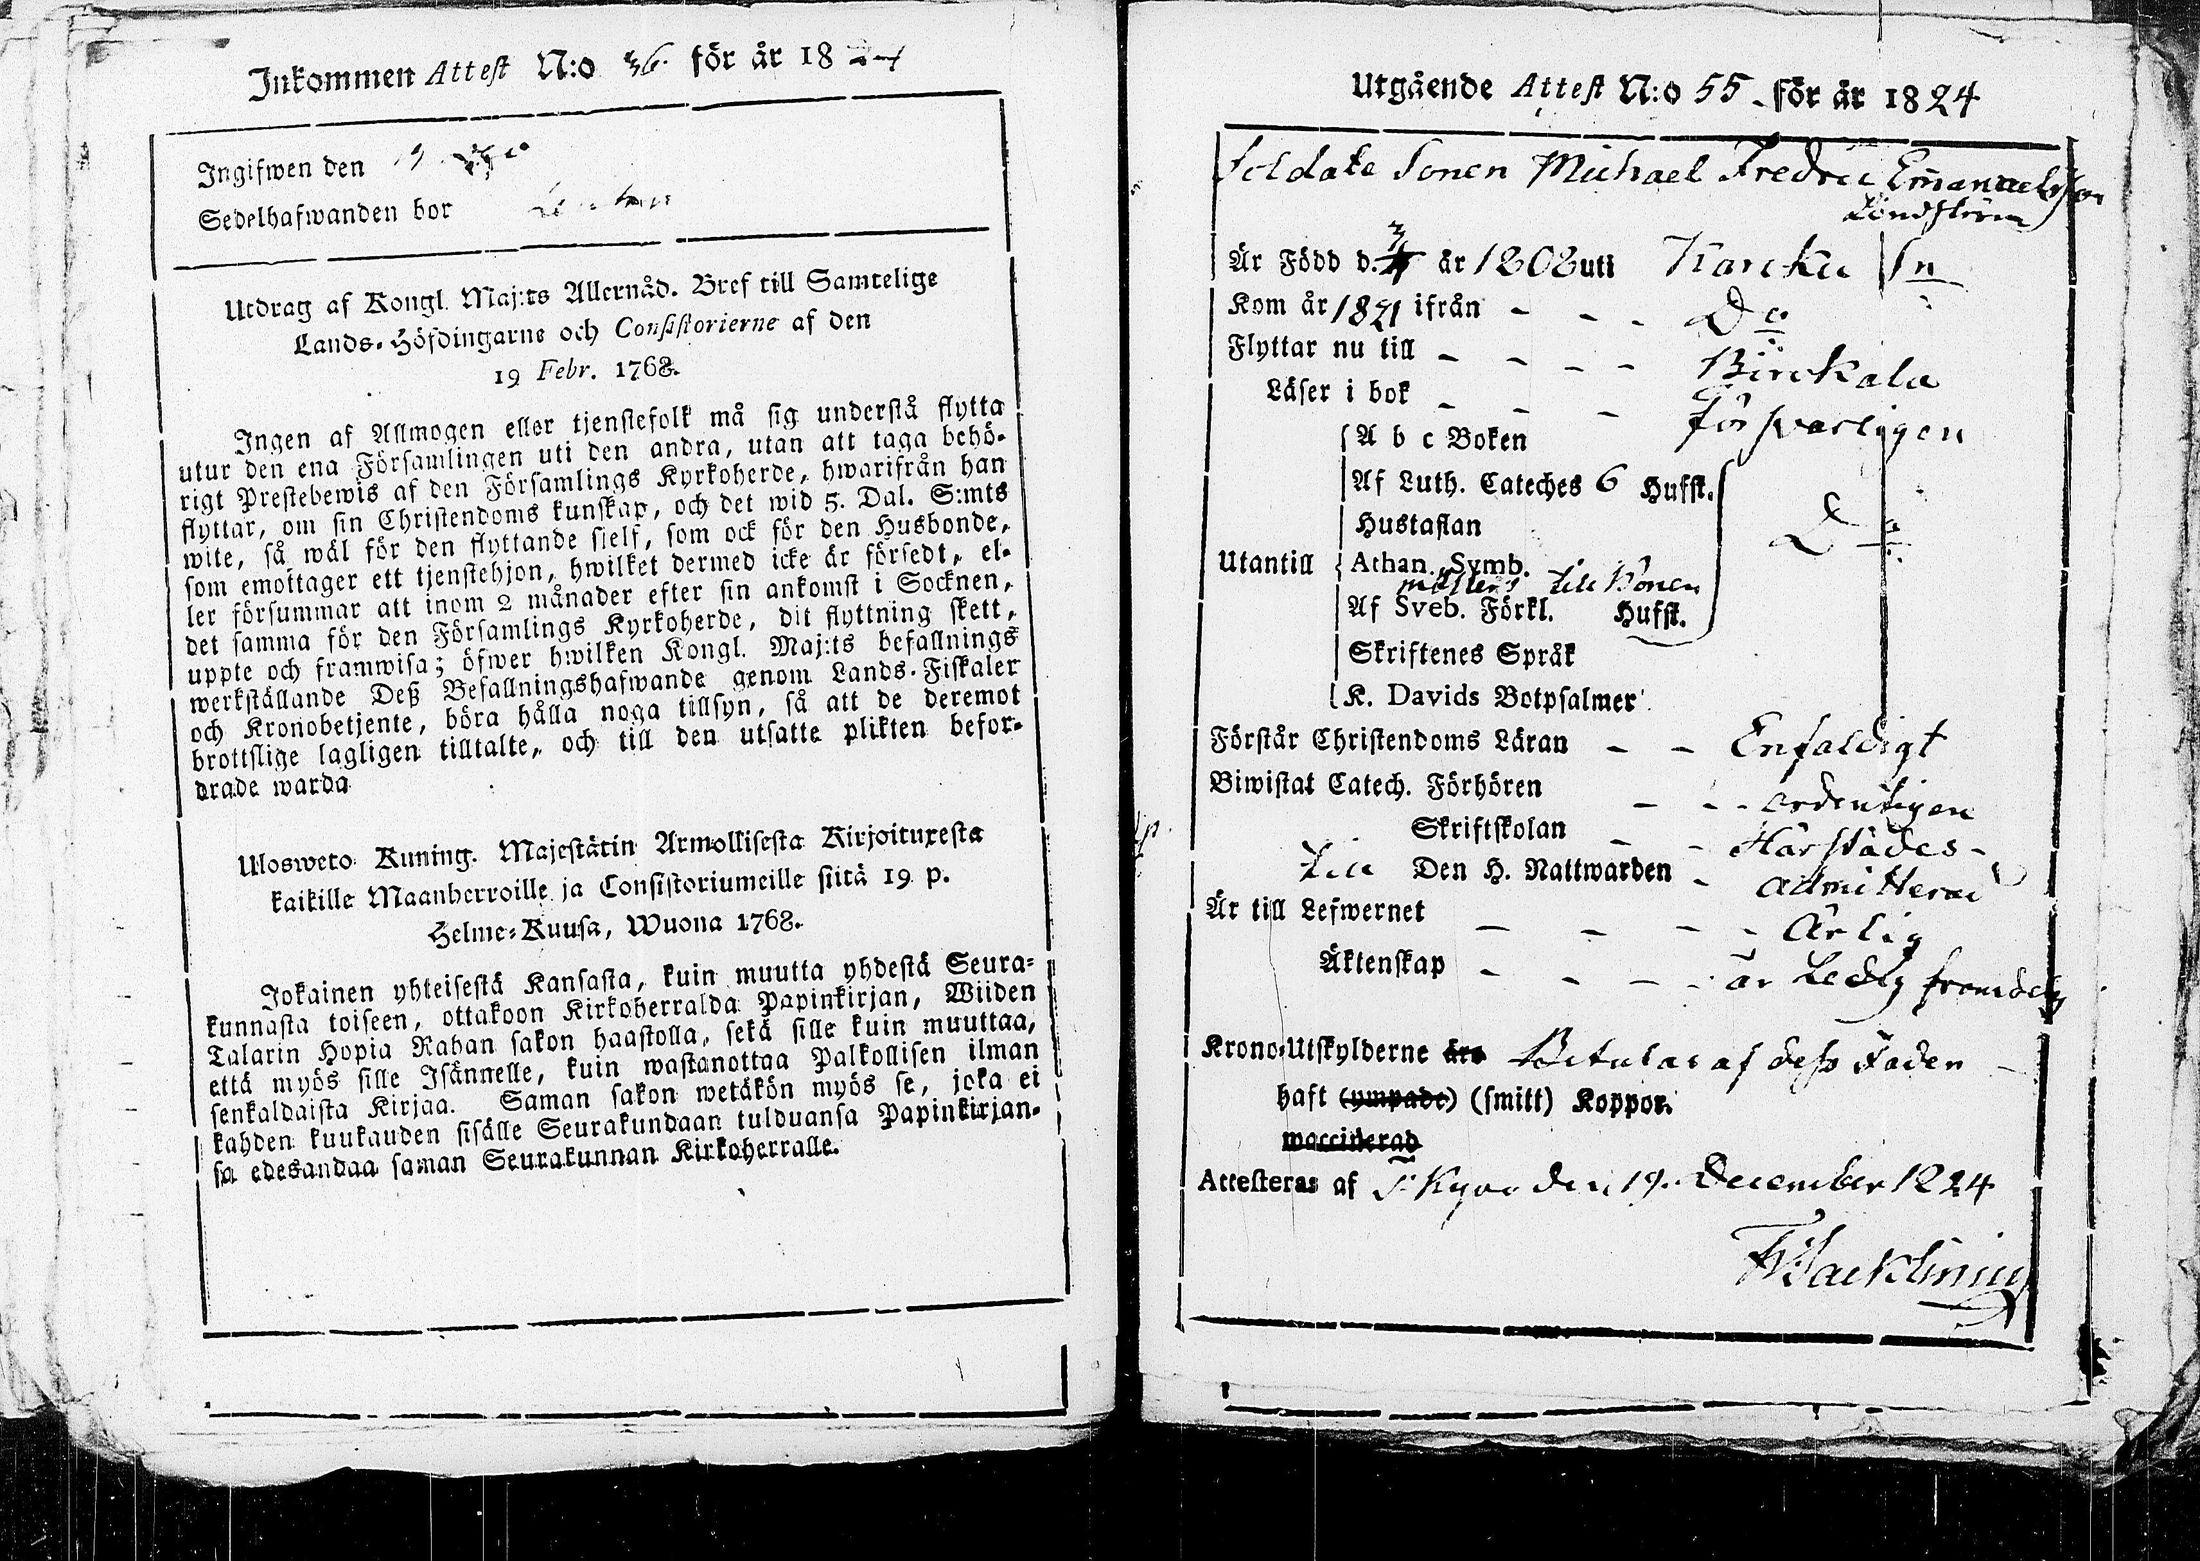 Inkommen Attest N:o 36. för år 1824
Ingifwen den 19
Sedelhafwanden bor
Utdrag af Kongl. Maj:ts Allernåd. Bref till Samtelige
Lands-Höfdingarne och Consistorierne af den
19 Febr. 1768.
Ingen af Allmogen eller tjenstefolk må sig understå flytta
utur den ena Församlingen uti den andra, utan att taga behö-
rigt Prestebewis af den Församlings Kyrkoherde, hwarifrån han
flyttar, om sin Christendoms kunskap, och det wid 5. Dal. S:mts
wite, så wäl för den flyttande sjelf, som ock för den Husbonde,
som emottager ett tjenstehjon, hwilket dermed icke är försedt, el-
ler försummar att inom 2 månader efter sin ankomst i Socknen,
det samma för den Församlings Kyrkoherde, dit flyttning skett,
uppte och framwisa; öfwer hwilken Kongl. Maj:ts befallnings
werkställande Deß Befallningshafwande genom Lands-Fiskaler
och Kronobetjente, böra hålla noga tillsyn, så att de deremot
brottslige lagligen tilltalte, och till den utsatte plikten befor-
drade warda
Ulosweto Kuning. Majestätin Armollisesta Kirjoituxesta
kaikille Maanherroille ja Consistoriumeille siitä 19 p.
Helme-Kuusa, Wuona 1768.
Jokainen yhteisestä Kansasta, kuin muutta yhdestä Seura-
kunnasta toiseen, ottakoon Kirkoherralda Papinkirjan, Wiiden
Talarin Hopia Rahan sakon haastolla, sekä sille kuin muuttaa,
että myös sille Isännelle, kuin wastanottaa Palkollisen ilman
senkaldaista Kirjaa. Saman sakon wetäkön myös se, joka ei
kahden kuukauden sisälle Seurakundaan tulduansa Papinkirjan-
sa edesandaa saman Seurakunnan Kirkoherralle.
Utgående Attest N:o 55. för år 1824
Soldate Sonen Michael Fredric Emanuelsson
Lindström
Är Född d. 3/4 år 1808 uti Karcku Sn
Kom år 1821 ifrån - - - Do
Flyttar nu till - - - - - Birckala
Läser i bok - - - försvarligen
A b c Boken
Af Luth. Cateches 6 Hufst.
Hustaflan
Do
Utantill Athan. Symb.
möllers till Bönen
Af Sveb. Förkl. Hufst.
Skriftenes Språk
K. Davids Botpsalmer
Förstår Christendoms Läran - - Enfaldigt
Biwistat Catech. Förhören - - - ordentligen
Skriftskolan - - Härstädes -
till Den H. Nattwarden - admitterad
Är till Lefwernet - - - - Ärlig
Äktenskap - - - - är Ledig framdeles
Krono-Utskylderne äro Betalas af dess Fader
haft (ympade) (smitt) Koppor.
waccinerad
Attesteras af Kyro den 19. December 1824